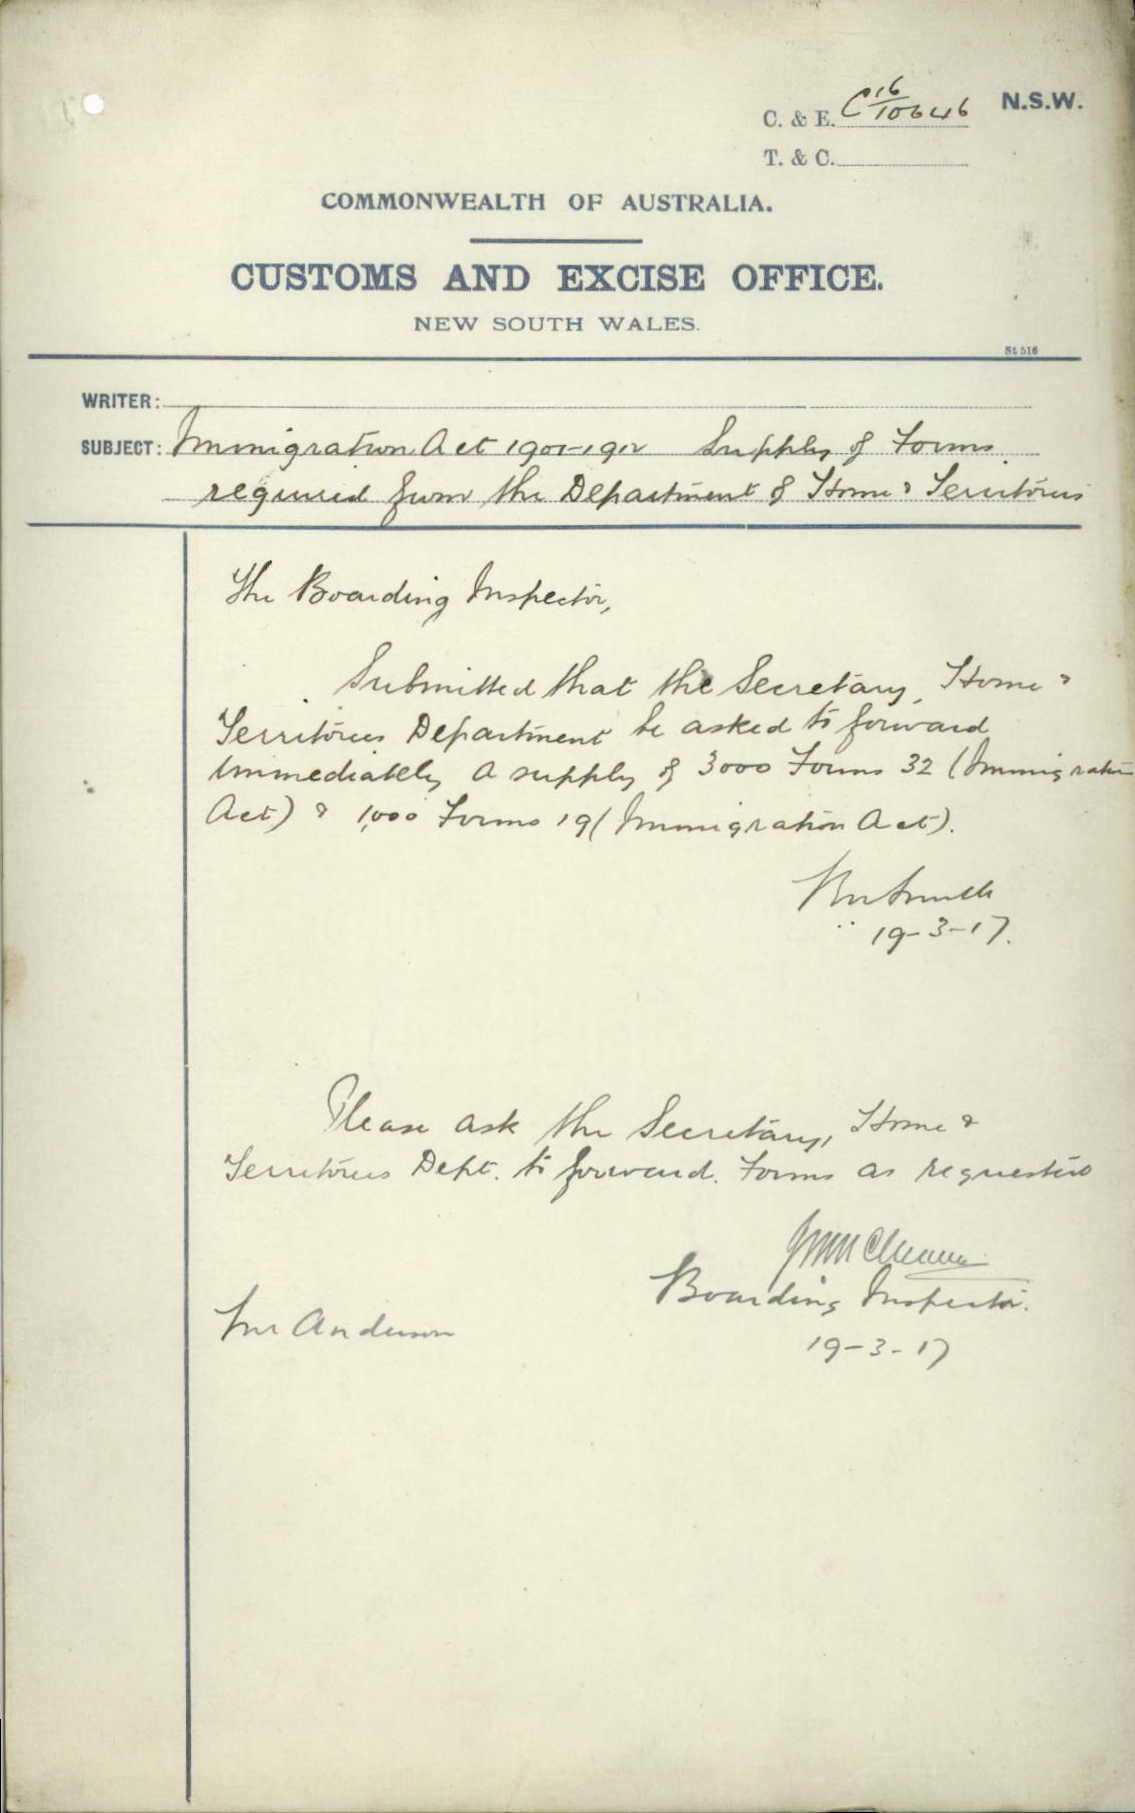 C. & E. C16/10646 N.S.W.
T. & C.
COMMONWEALTH OF AUSTRALIA.
CUSTOMS AND EXCISE OFFICE.
NEW SOUTH WALES.
St 516
WRITER:
SUBJECT: Immigration Act 1901-1912 Supply of Forms
required from the Department of Home & Territories
The Boarding Inspector,
Submitted that the Secretary, Home &
Territories Department be asked to forward
immediately a supply of 3000 Forms 32 (Immigration
Act) & 1,000 Forms 19 (Immigration Act).
19-3-17.
Please ask the Secretary, Home &
Territories Dept. to forward Forms as requested
Boarding Inspector.
Mr Anderson
19-3-17